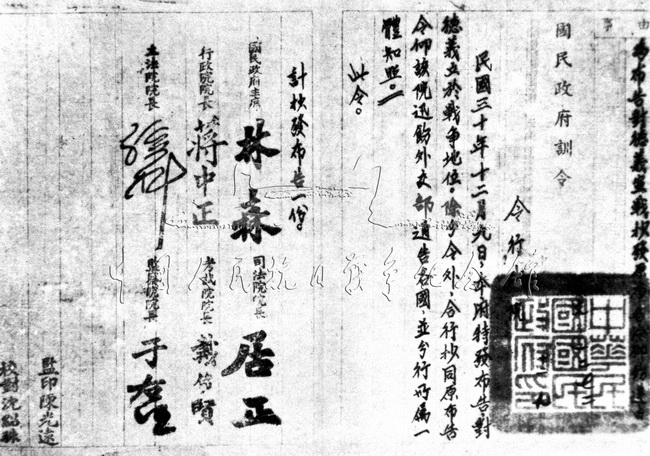 事由
為布告對德義宣戰抄發
國民政府訓令
令行
中華民國國民政府印
民國三十年十二月九日，本府特發布告，對
德義立於戰爭地位。除分令外，合行抄同原布告
令仰該院迅飭外交部通告各國，並分行所屬一
體知照。
此令。
計抄發布告一份。
國民政府主席 林森
行政院院長 蔣中正
立法院院長 孫科
司法院院長 居正
考試院院長 戴傳賢
監察院院長 于右任
監印陳光遠
校對沈紹
中国人民抗日战争纪念馆